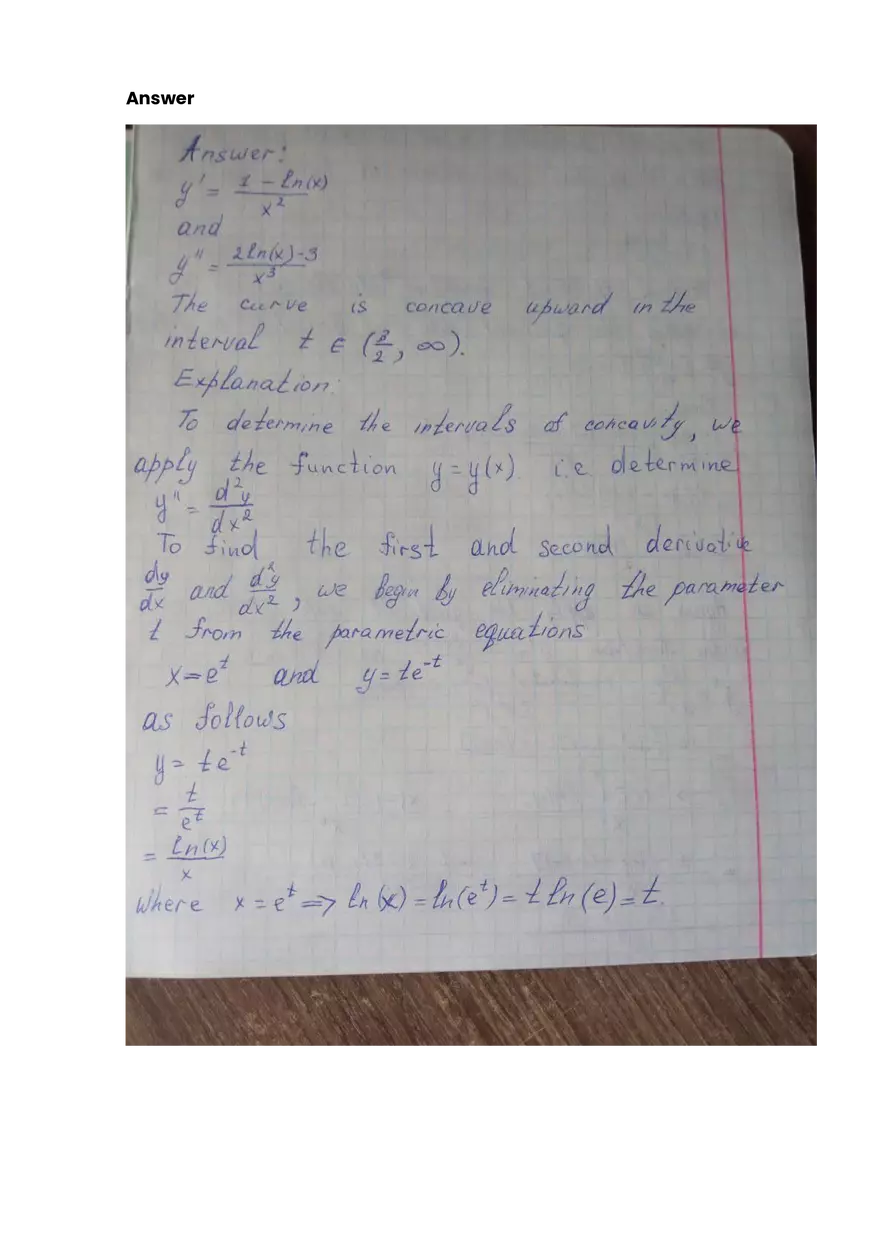 Answer
Answer:
y' = (1 - ln(x)) / x²
and
y'' = (2ln(x)-3) / x³
The curve is concave upward in the
interval t ∈ (3/2, ∞).
Explanation:
To determine the intervals of concavity, we
apply the function y=y(x). i.e determine
y'' = d²y/dx²
To find the first and second derivative
dy/dx and d²y/dx², we begin by eliminating the parameter
t from the parametric equations
x=eᵗ and y=te⁻ᵗ
as follows
y= te⁻ᵗ
= t/eᵗ
= ln(x)/x
where x=eᵗ => ln(x)=ln(eᵗ)=t ln(e)=t.